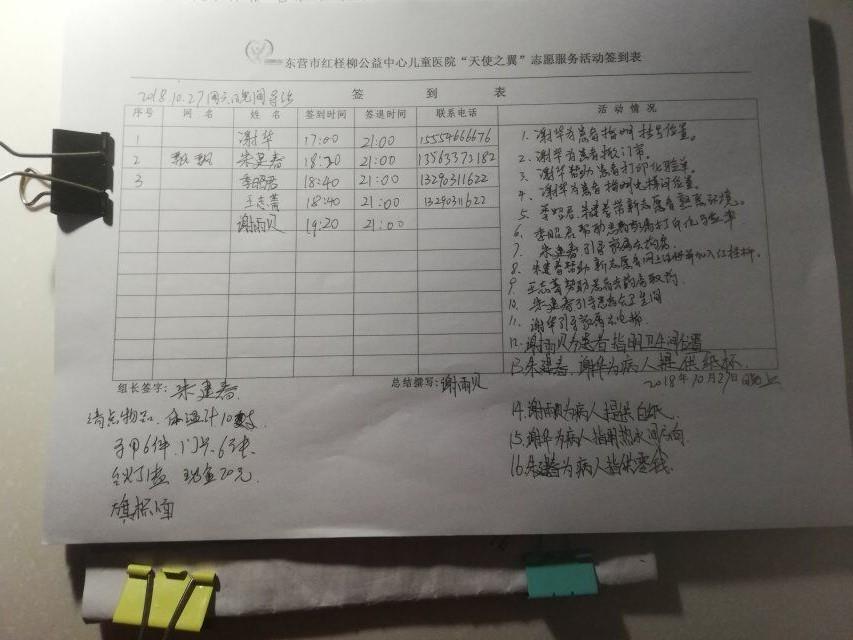 东营市红柽柳公益中心儿童医院“天使之翼”志愿服务活动签到表
2018.10.27周六晚间导诊
签 到 表
序号 网 名 姓 名 签到时间 签退时间 联系电话 活 动 情 况
1 谢华 17:00 21:00 15554666676
2 朱建春 18:20 21:00 13563373182
3 李昭君 18:40 21:00 13290311622
王志菁 18:40 21:00 13290311622
谢雨贝 19:20 21:00
1、谢华为患者指明挂号位置。
2、谢华为患者搬门帘。
3、谢华帮助患者打印化验单。
4、谢华为患者指明电梯间位置。
5、李昭君、朱建春带新志愿者熟悉环境。
6、李昭君帮助患者家属打印化验单
7、朱建春引导家属去拘
8、朱建春帮助新志愿者网上注册并加入红柽柳。
9、王志菁帮助患者去药房取药
10、朱建春引导患者去卫生间
11、谢华引导家属去电梯
12、谢雨贝为患者指明卫生间位置
13、朱建春、谢华为病人提供纸杯
组长签字: 朱建春
总结撰写: 谢雨贝
2018年10月27日晚上
清点物品、体温计10支
马甲6件、门卡6张
台灯1盏 现金20元
旗帜1面
14、谢雨贝为病人提供白纸
15、谢华为病人指明热水间方向
16、朱建春为病人提供零钱